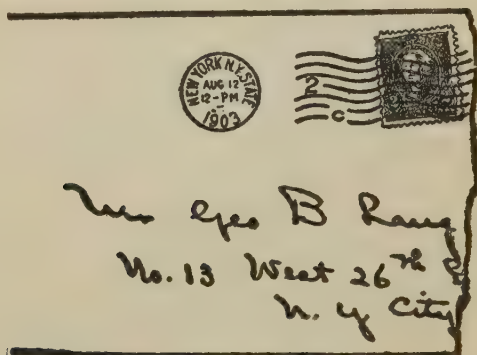 NEW YORK N.Y. STATE
AUG 12
12-PM
1903
2
C
Geo B
No. 13 West 26th
N. Y City